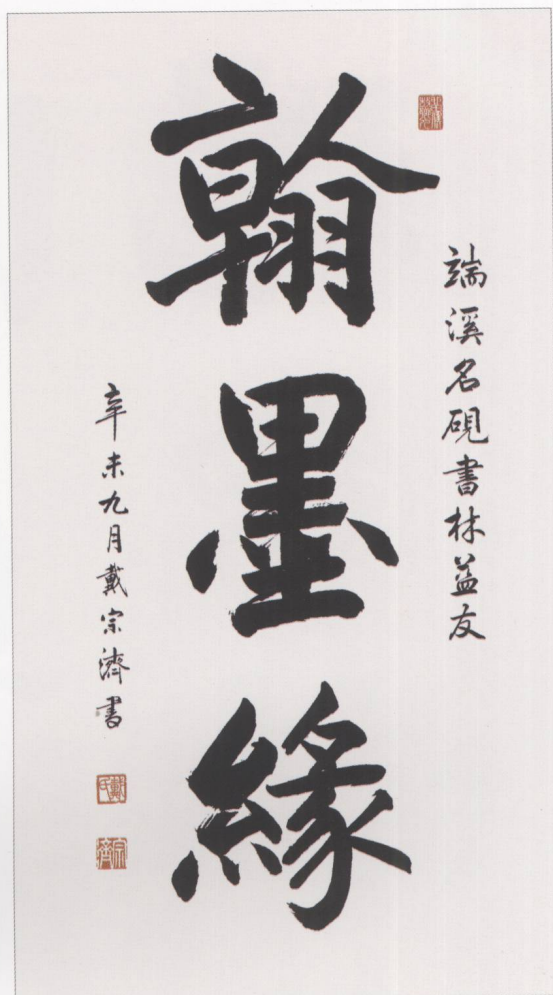 端溪名硯書林益友
翰墨緣
辛未九月戴宗濟書
戴氏
宗濟